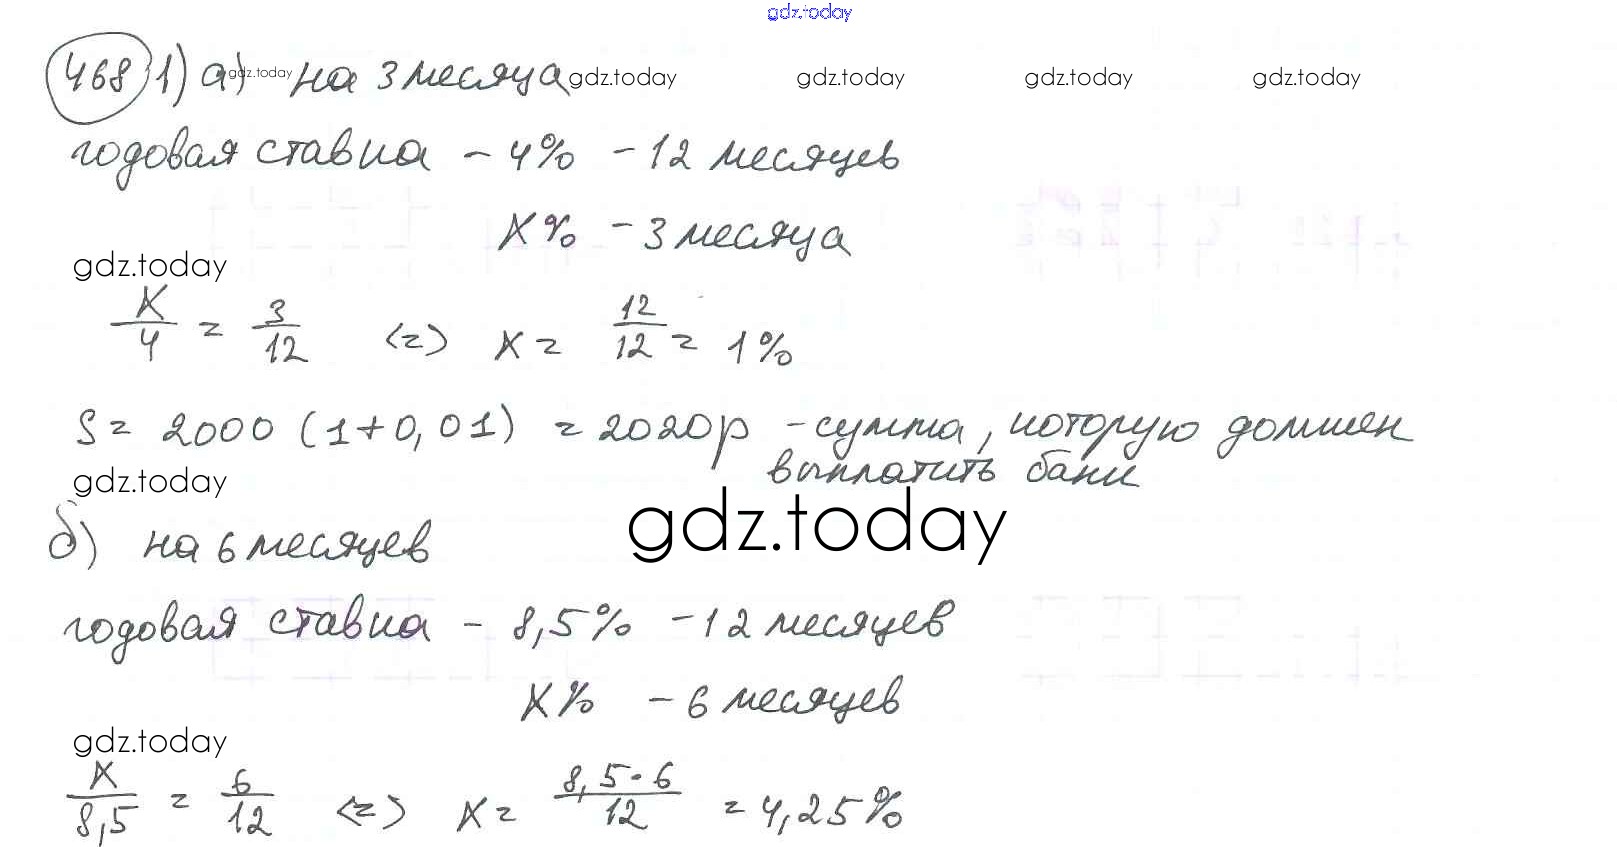 gdz.today
468 1) а) gdz.today на 3 месяца gdz.today gdz.today gdz.today gdz.today
годовая ставка - 4% - 12 месяцев
x% - 3 месяца
gdz.today
x/4 = 3/12 <=> x = 12/12 = 1%
S = 2000 (1+0,01) = 2020р - сумма, которую должен
выплатить банк
gdz.today
gdz.today
б) на 6 месяцев
годовая ставка - 8,5% - 12 месяцев
x% - 6 месяцев
gdz.today
x/8,5 = 6/12 <=> x = 8,5·6/12 = 4,25%